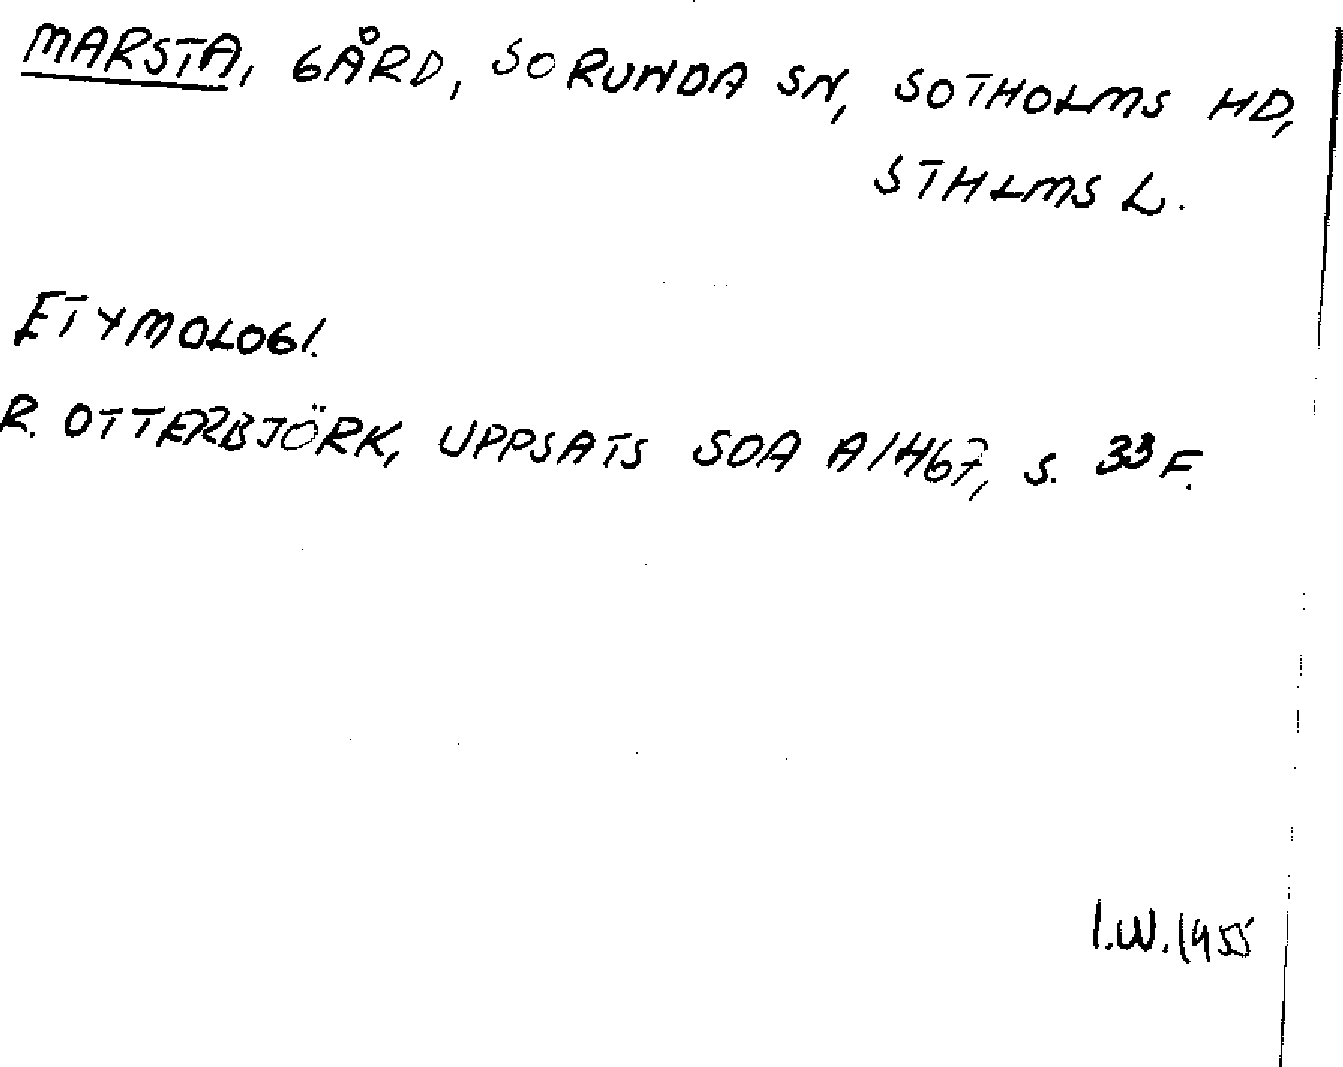 MARSTA, GÅRD, SORUNDA SN, SOTHOLMS HD,
STHLMS L.
ETYMOLOGI.
R. OTTERBJÖRK, UPPSATS SOA A1467, S. 33 F.
I.W. 1955